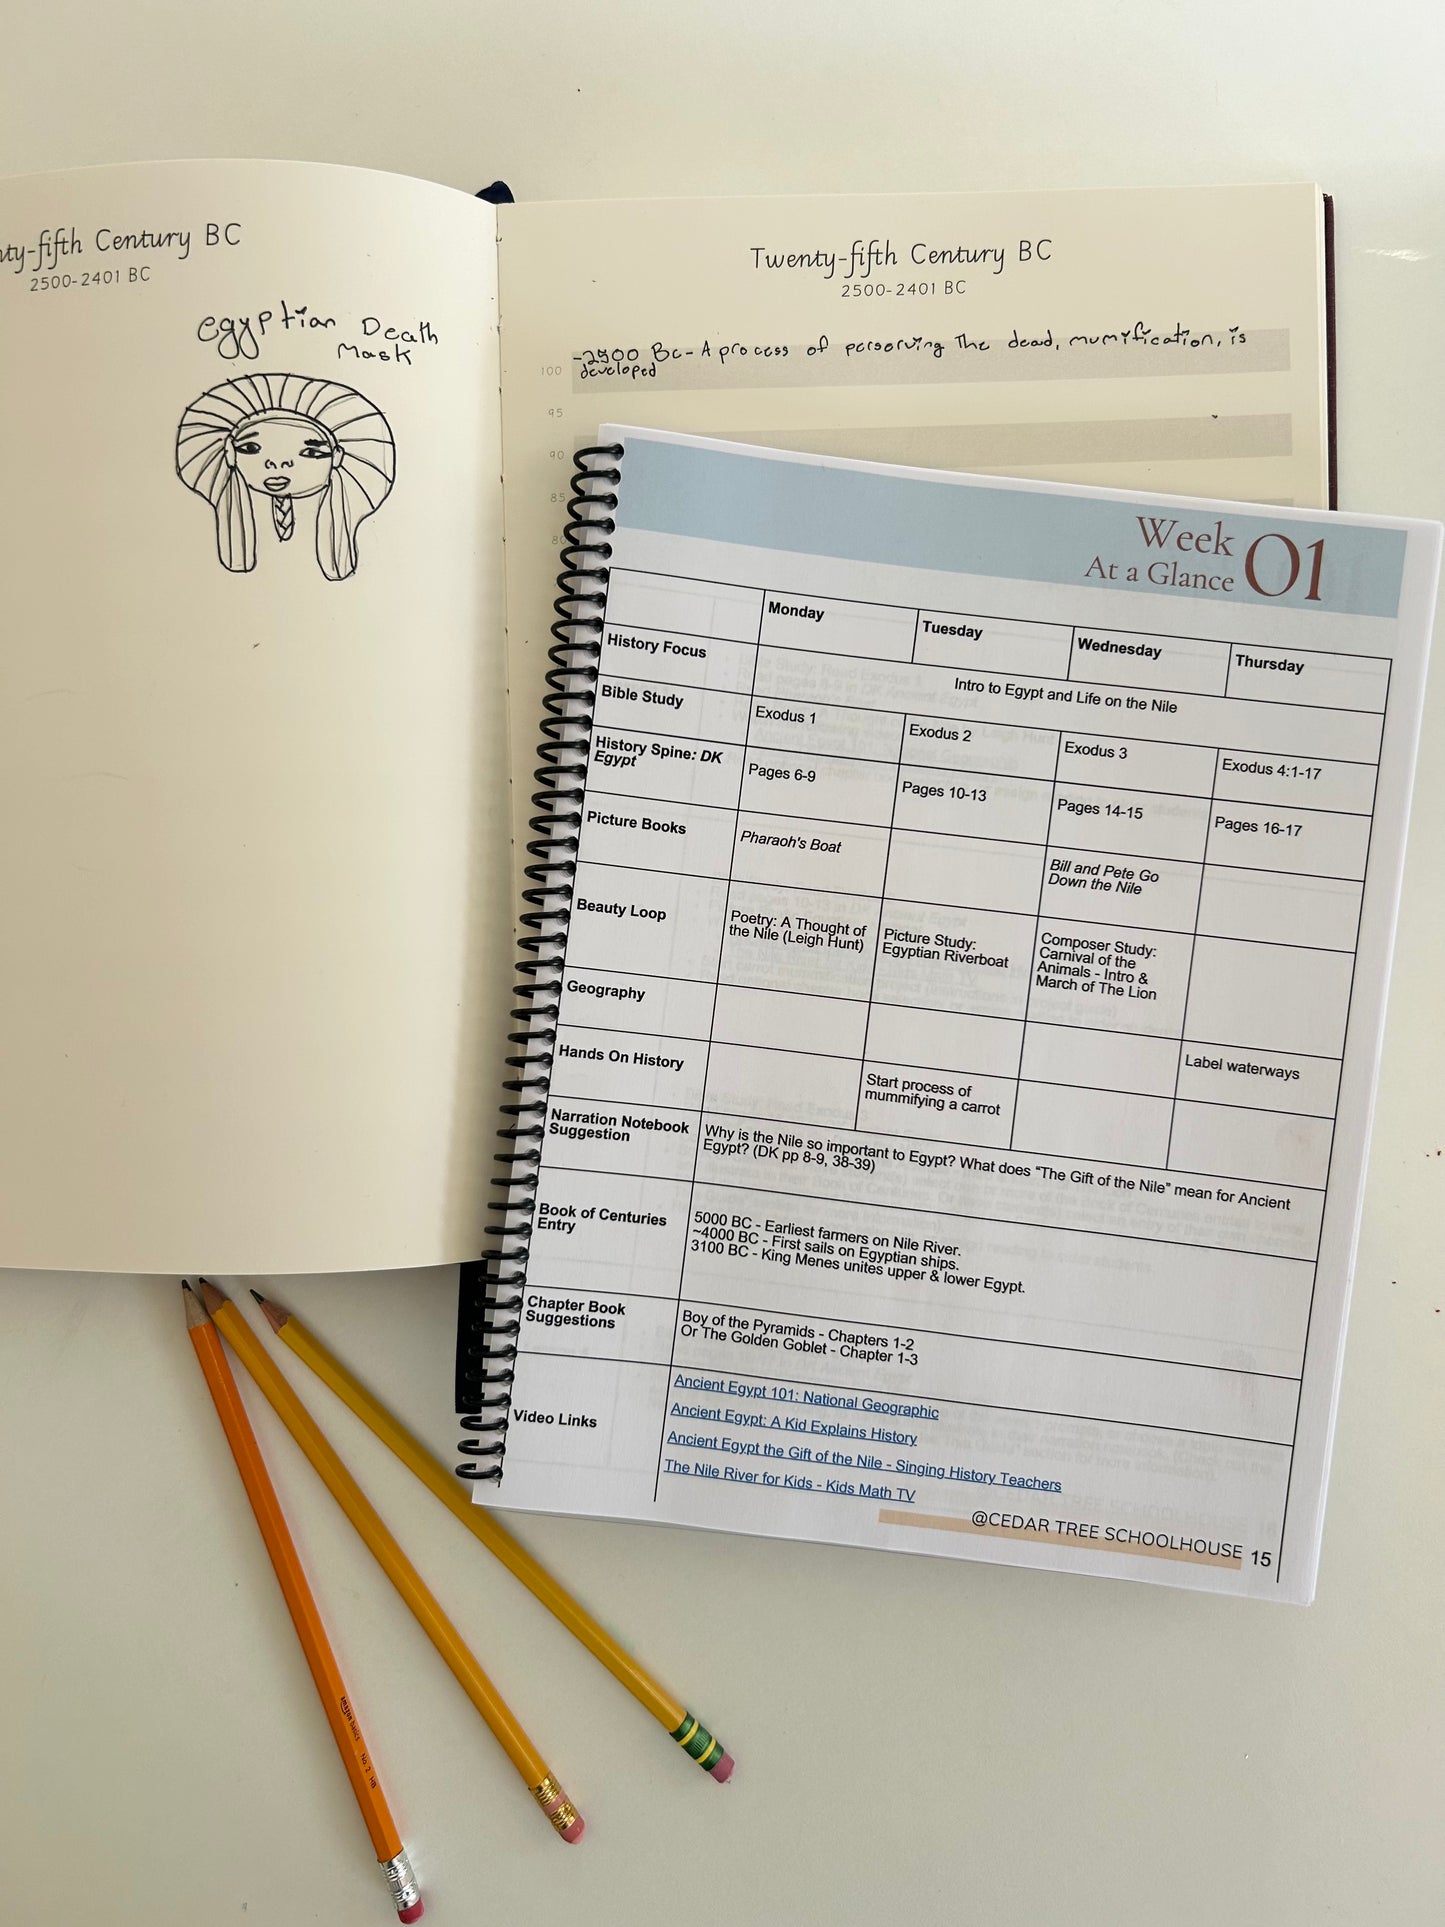 ty-fifth Century BC
2500-2401 BC
egyptian Death
Mask
Twenty-fifth Century BC
2500-2401 BC
-2500 BC- A process of perserving The dead, mumification, is
developed
100
95
90
85
80
Week
At a Glance
01
Monday
Tuesday
Wednesday
Thursday
History Focus
Intro to Egypt and Life on the Nile
Bible Study
Exodus 1
Exodus 2
Exodus 3
Exodus 4:1-17
History Spine: DK
Egypt
Pages 6-9
Pages 10-13
Pages 14-15
Pages 16-17
Picture Books
Pharaoh's Boat
Bill and Pete Go
Down the Nile
Beauty Loop
Poetry: A Thought of
the Nile (Leigh Hunt)
Picture Study:
Egyptian Riverboat
Composer Study:
Carnival of the
Animals - Intro &
March of The Lion
Geography
Label waterways
Hands On History
Start process of
mummifying a carrot
Narration Notebook
Suggestion
Why is the Nile so important to Egypt? What does "The Gift of the Nile" mean for Ancient
Egypt? (DK pp 8-9, 38-39)
Book of Centuries
Entry
5000 BC - Earliest farmers on Nile River.
~4000 BC - First sails on Egyptian ships.
3100 BC - King Menes unites upper & lower Egypt.
Chapter Book
Suggestions
Boy of the Pyramids - Chapters 1-2
Or The Golden Goblet - Chapter 1-3
Video Links
Ancient Egypt 101: National Geographic
Ancient Egypt: A Kid Explains History
Ancient Egypt the Gift of the Nile - Singing History Teachers
The Nile River for Kids - Kids Math TV
@CEDAR TREE SCHOOLHOUSE
15
amazon basics No. 2 HB